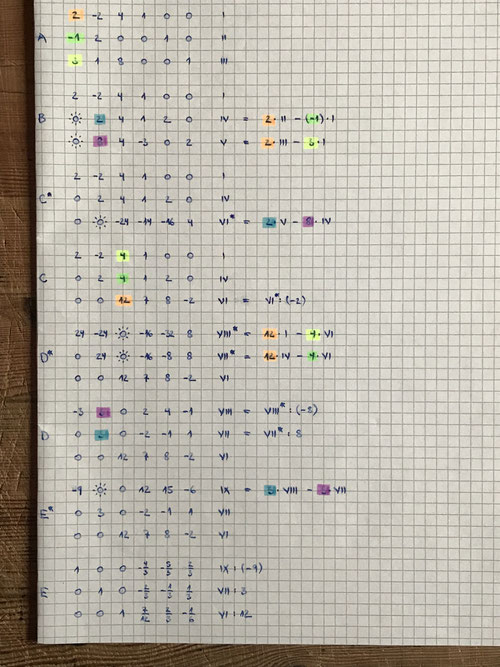 2 -2 4 1 0 0 I
A -1 2 0 0 1 0 II
3 1 8 0 0 1 III
2 -2 4 1 0 0 I
B 0 2 4 1 2 0 IV = 2· II - (-1)· I
0 8 4 -3 0 2 V = 2· III - 3· I
2 -2 4 1 0 0 I
C* 0 2 4 1 2 0 IV
0 0 -24 -14 -16 4 VI* = 2· V - 8· IV
2 -2 4 1 0 0 I
C 0 2 4 1 2 0 IV
0 0 12 7 8 -2 VI = VI* : (-2)
24 -24 0 -16 -32 8 VIII* = 12· I - 4· VI
D* 0 24 0 -16 -8 8 VII* = 12· IV - 4· VI
0 0 12 7 8 -2 VI
-3 3 0 2 4 -1 VIII = VIII* : (-8)
D 0 3 0 -2 -1 1 VII = VII* : 8
0 0 12 7 8 -2 VI
-9 0 0 12 15 -6 IX = 3· VIII - 3· VII
E* 0 3 0 -2 -1 1 VII
0 0 12 7 8 -2 VI
1 0 0 -4/3 -5/3 2/3 IX : (-9)
E 0 1 0 -2/3 -1/3 1/3 VII : 3
0 0 1 7/12 2/3 -1/6 VI : 12